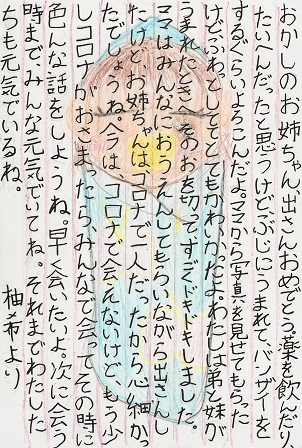 おかしのお姉ちゃん、出さんおめでとう。薬を飲んだり
たいへんだったと思うけど、ぶじにうまれて、バンザイーを
するぐらいよろこんだよ。ママから写真を見せてもらった
けど、ふわっとしててとてもかわいかたよ。わたしは弟と妹が
うまれたとき、へそのおを切って、すごくドキドキしました。
ママはみんなにおうえんしてもらいながら出さんし
たけど、お姉ちゃんは、コロナで一人だったから心細か
ったでしょうね。今は、コロナで会えないけど、もう少
しコロナがおさまったら、みんなで会って、その時に
色んな話をしようね。早く会いたいよ。次に会う
時まで、みんな元気でいてね。それまでわたした
ちも元気でいるね。
柚希より